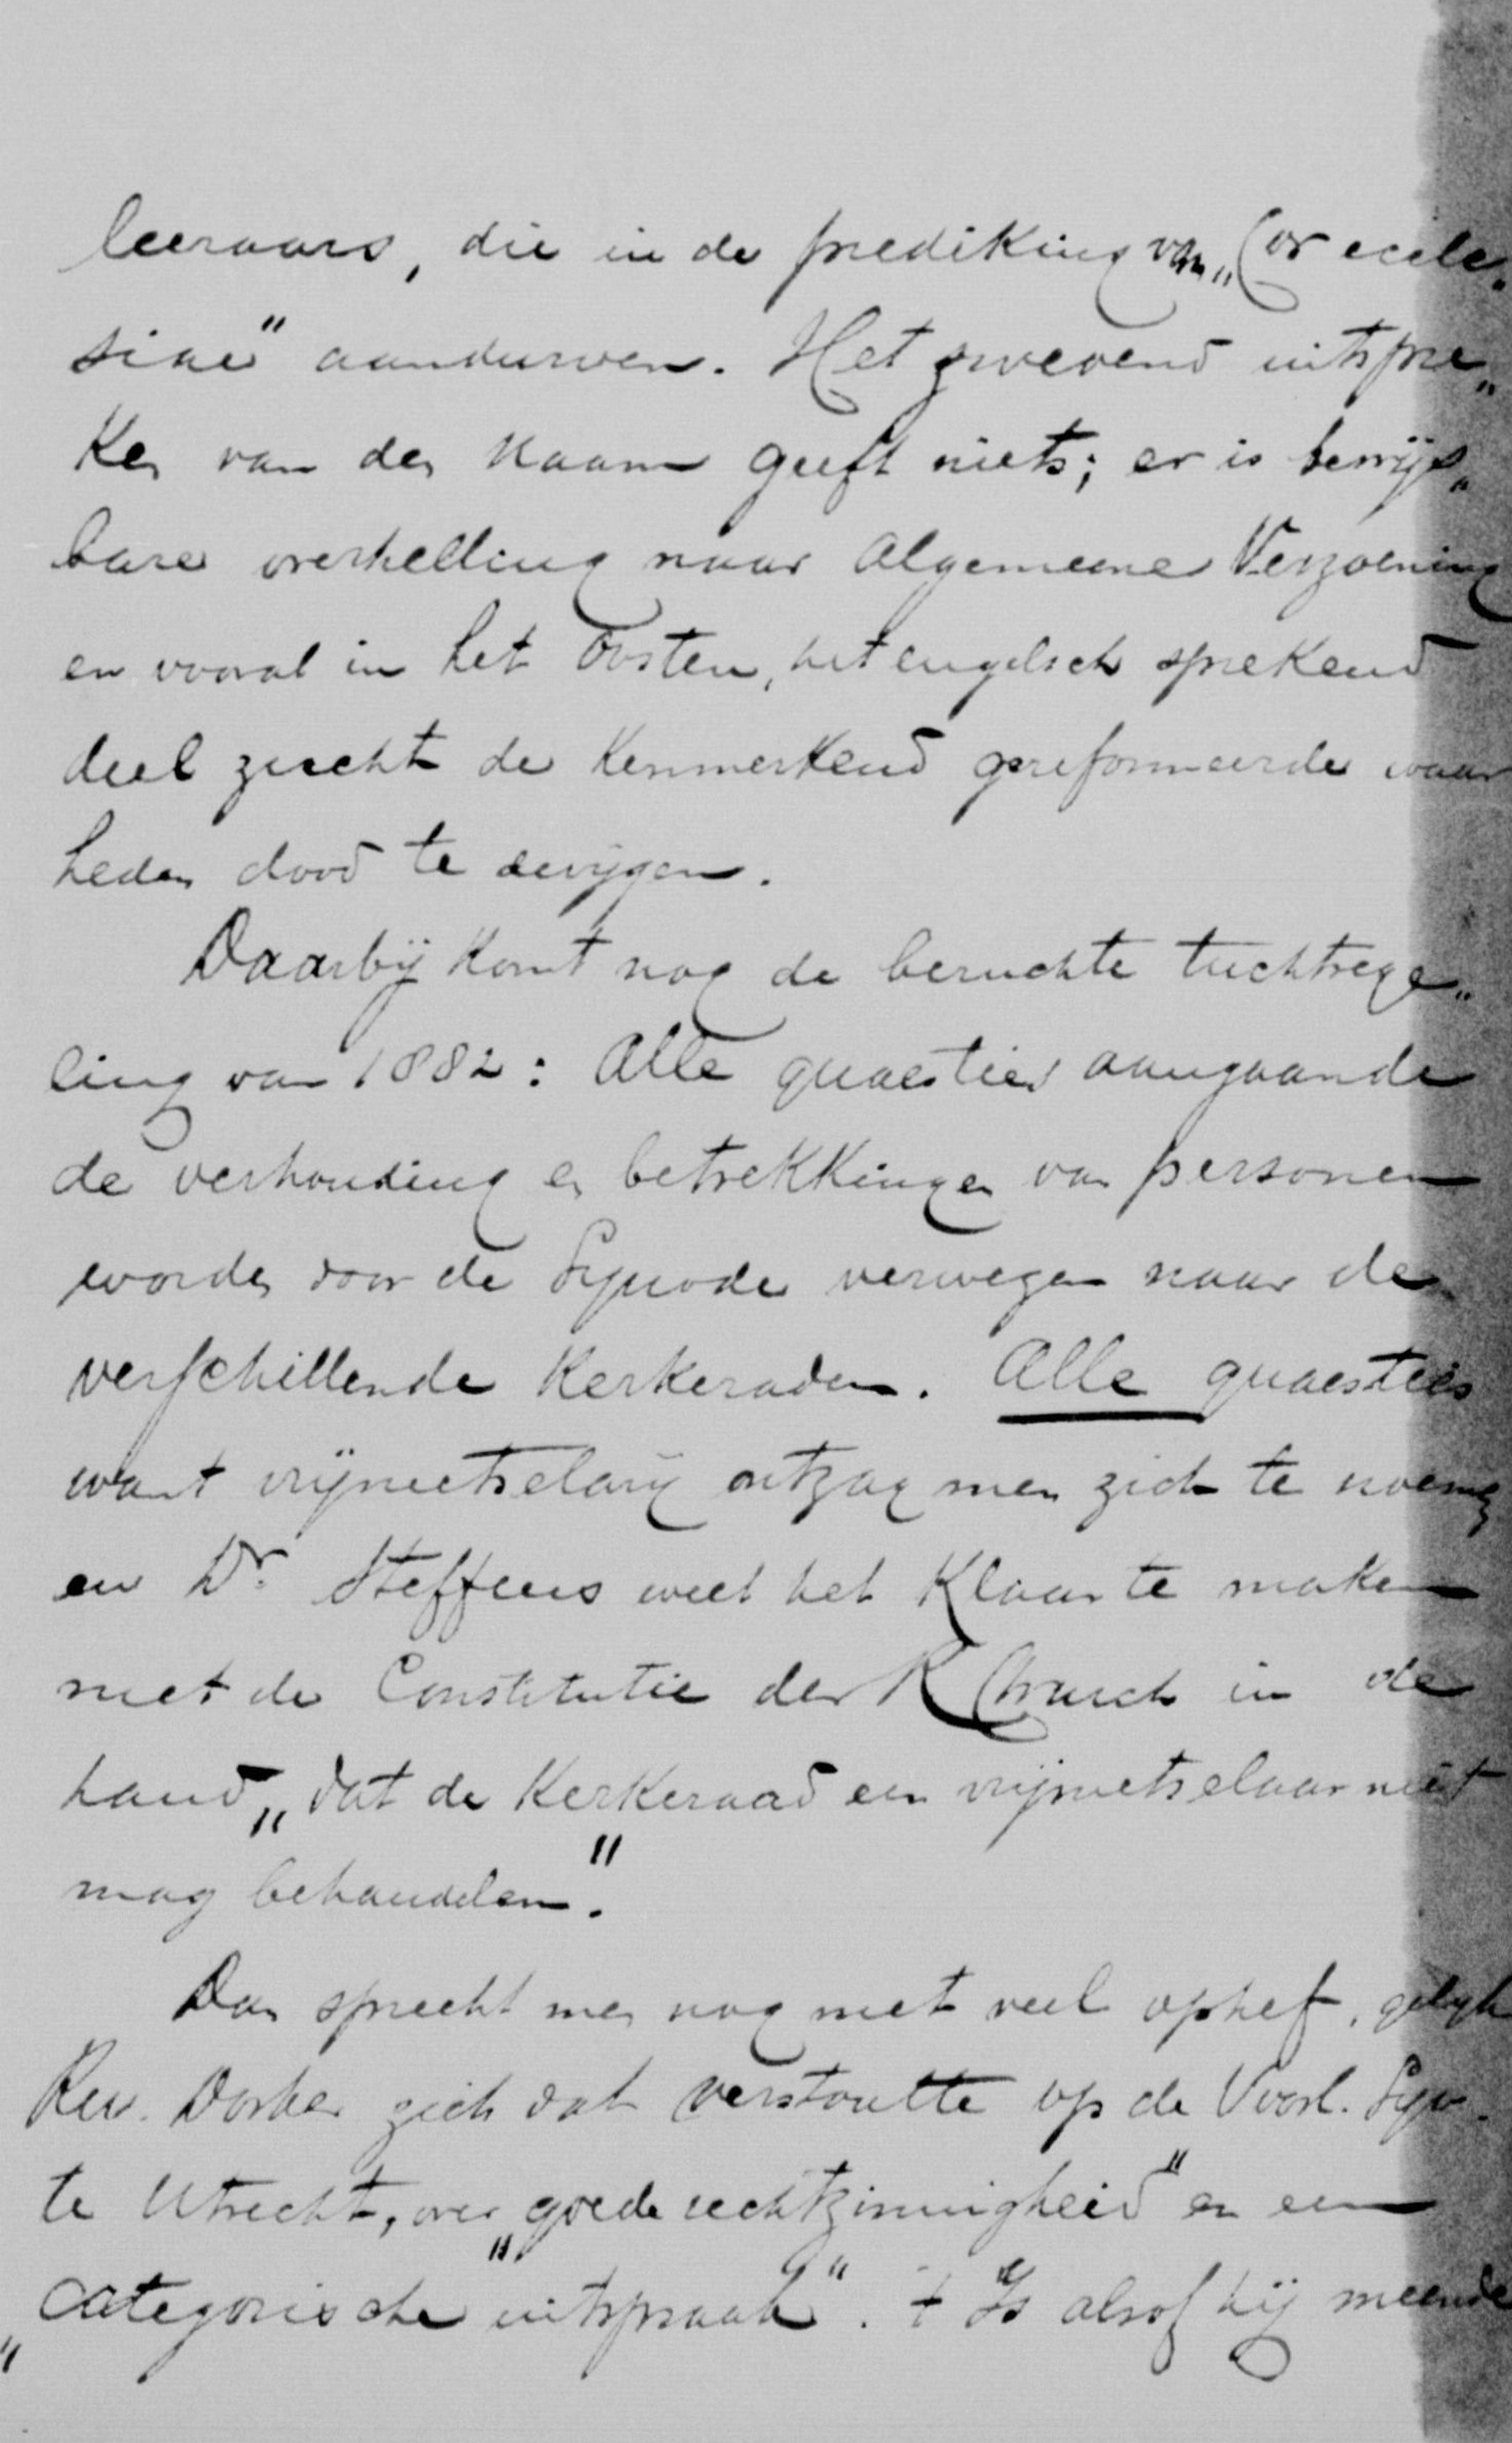 leeraars, die in de prediking van „Cor eccle„
siae" aandurven. Het zwevend uitspre„
ken van den naam geeft niets; er is bewijs„
bare overhelling naar Algemeene Verzoening
en vooral in het Oosten, het engelsch sprekend
deel zucht de kenmerkend gereformeerde waar
heden dood te zwijgen.
Daarbij komt nog de beruchte tuchtrege„
ling van 1882: Alle quaesties aangaande
de verhouding en betrekkingen van personen
worden door de Synode verwezen naar de
verschillende Kerkeraden. Alle quaesties
want vrijmetselarij ontzag men zich te noemen
en Dr. Steffens weet het klaar te maken
met de Constitutie der R Church in de
hand „dat de Kerkeraad een vrijmetselaar niet
mag behandelen".
Dan spreekt men nog met veel ophef, gelijk
Rev. Dosker zich dat verstoutte op de Voorl. Syn.
te Utrecht, over „goede rechtzinnigheid" en een
„categorische uitspraak". 't Is alsof hij meende